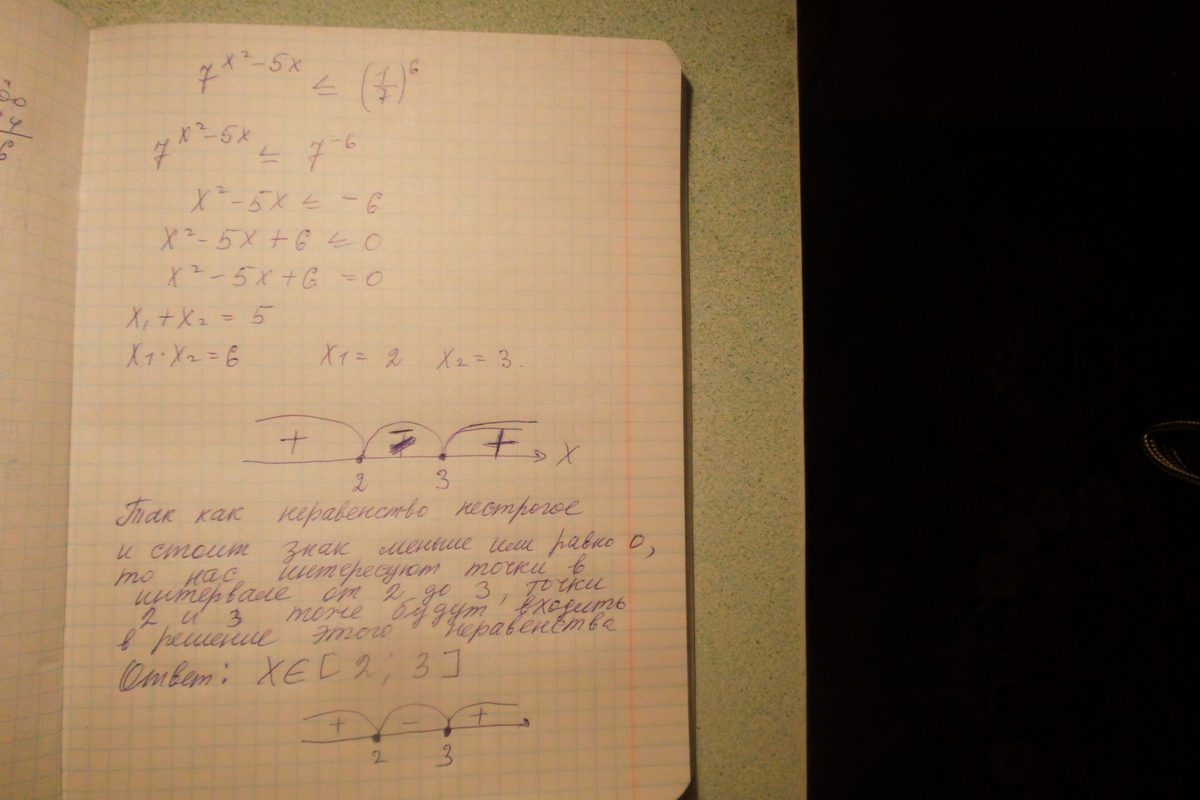 7^(x²-5x) ≤ (1/7)^6
7^(x²-5x) ≤ 7^(-6)
x²-5x ≤ -6
x²-5x+6 ≤ 0
x²-5x+6 = 0
x₁+x₂ = 5
x₁·x₂ = 6 x₁ = 2 x₂ = 3.
+ + x
2 3
Так как неравенство нестрогое
и стоит знак меньше или равно 0,
то нас интересуют точки в
интервале от 2 до 3, точки
2 и 3 тоже будут входить
в решение этого неравенства
Ответ: x∈[2; 3]
+ - +
2 3